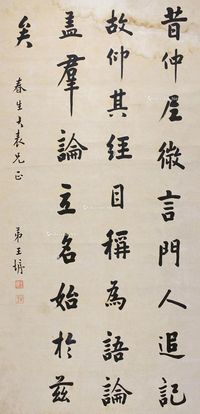 昔仲尼微言門人追記
故仰其經目稱為語論
蓋羣論立名始於茲
矣
春生大表兄正
弟王垿